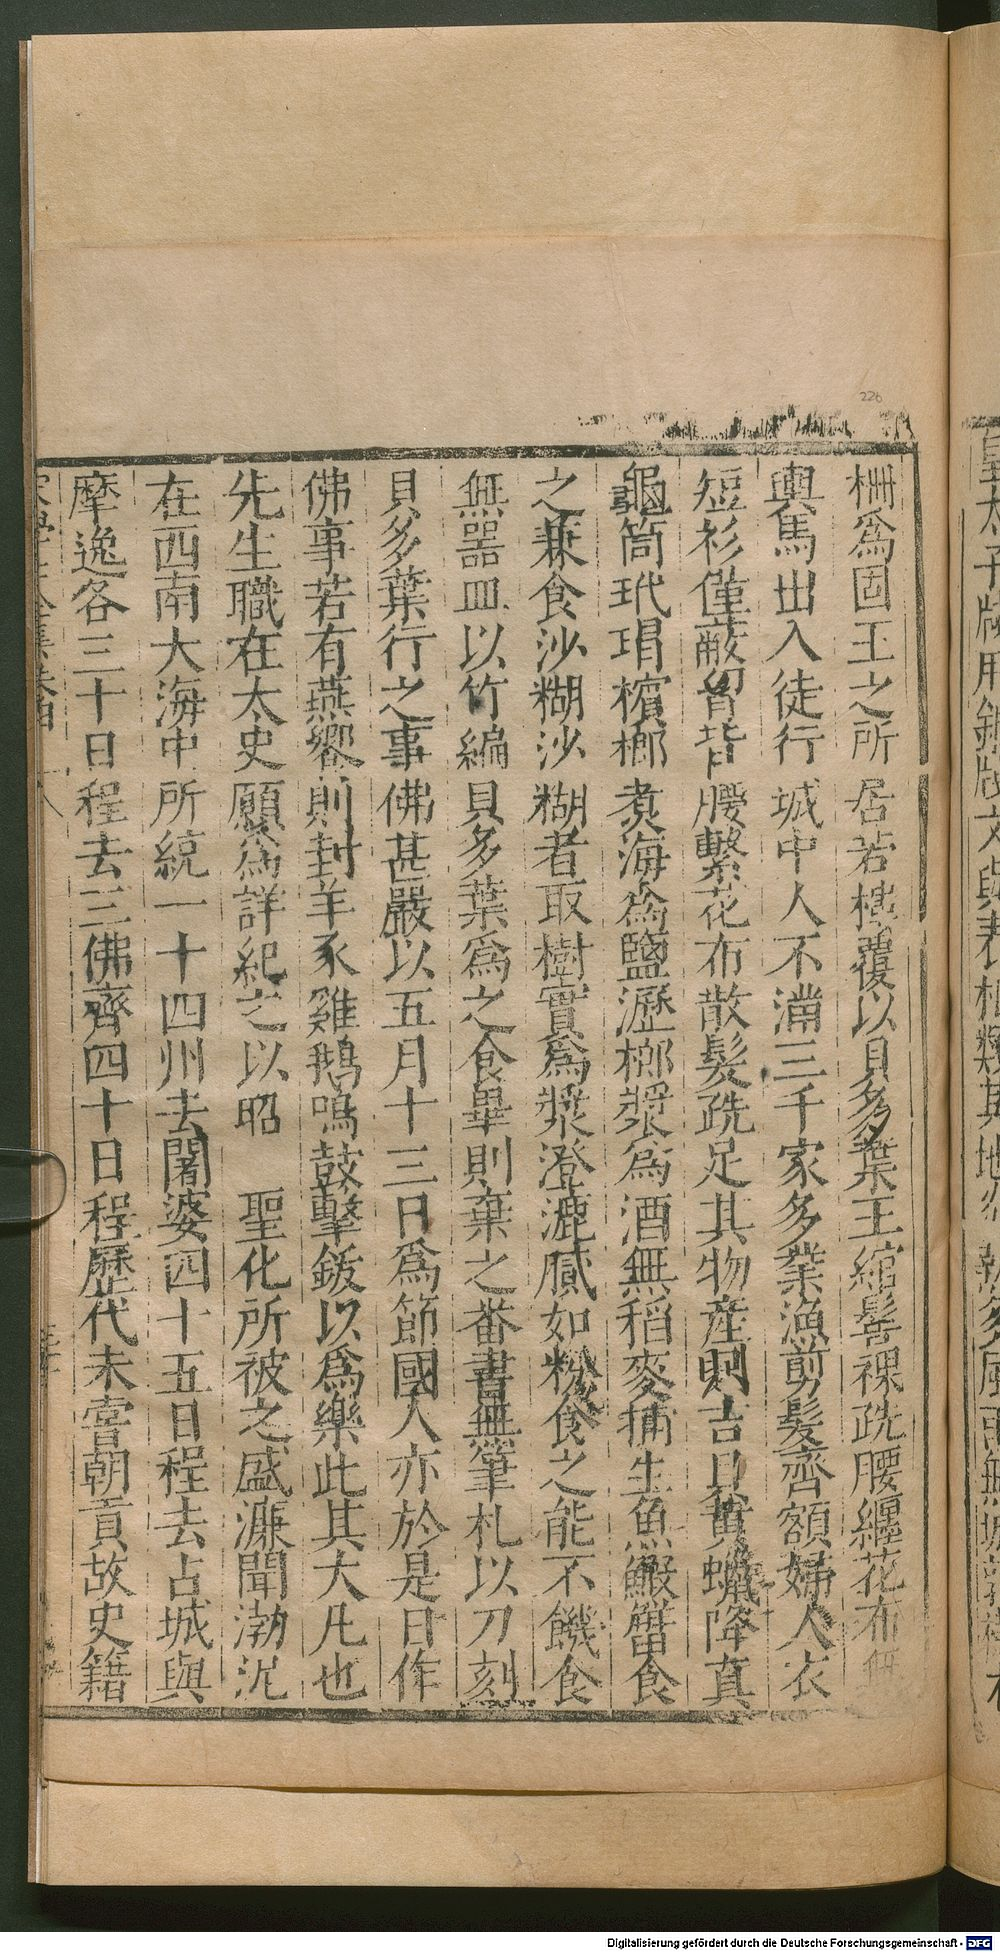 柵爲固王之所居若樓覆以貝多葉王綰髻裸跣腰纏花布無
輿馬出入徒行城中人不滿三千家多業漁剪髮齊額婦人衣
短衫僅蔽胷背腰繫花布散髮跣足其物産則吉貝黄蠟降真
龜筒玳瑁檳榔煮海爲鹽瀝榔漿爲酒無稻麥捕生魚鰕蟹食
之兼食沙糊沙糊者取樹實爲漿澄漉膩如粉食之能不饑食
無器皿以竹編貝多葉爲之食畢則棄之番書無筆札以刀刻
貝多葉行之事佛甚嚴以五月十三日爲節國人亦於是日作
佛事若有燕饗則封羊豕雞鵝鳴鼓擊鈸以爲樂此其大凡也
先生職在太史願爲詳紀之以昭　聖化所被之盛濂聞渤泥
在西南大海中所統一十四州去闍婆四十五日程去占城與
摩逸各三十日程去三佛齊四十日程歷代未嘗朝貢故史籍
226
Digitalisierung gefördert durch die Deutsche Forschungsgemeinschaft - DFG